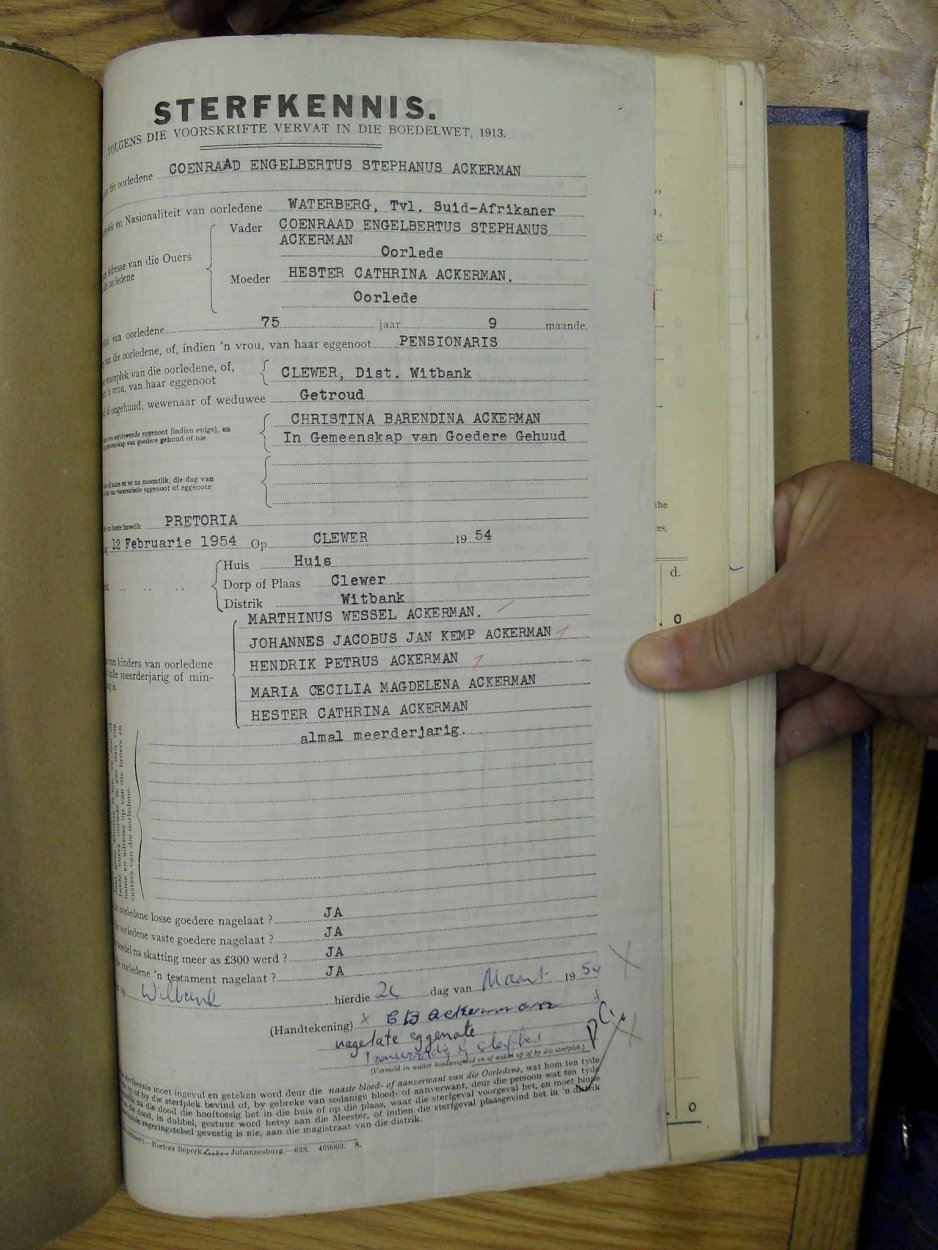 STERFKENNIS.
VOLGENS DIE VOORSKRIFTE VERVAT IN DIE BOEDELWET, 1913.
die oorledene COENRAAD ENGELBERTUS STEPHANUS ACKERMAN
en Nasionaliteit van oorledene WATERBERG, Tvl. Suid-Afrikaner
Vader COENRAAD ENGELBERTUS STEPHANUS
ACKERMAN
Adresse van die Ouers
Oorlede
oorledene
Moeder HESTER CATHRINA ACKERMAN.
Oorlede
van oorledene 75 jaar 9 maande.
van die oorledene, of, indien 'n vrou, van haar eggenoot PENSIONARIS
van die oorledene, of,
vrou, van haar eggenoot CLEWER, Dist. Witbank
ongehuud, wewenaar of weduwee Getroud
eggenoot (indien enige), en CHRISTINA BARENDINA ACKERMAN
gemeenskap van goedere gehuud of nie In Gemeenskap van Goedere Gehuud
name en so na moontlik, die dag van
van vooroorlede eggenoot of eggenote
huwelik PRETORIA
12 Februarie 1954 Op CLEWER 19 54
Huis Huis
Dorp of Plaas Clewer
Distrik Witbank
MARTHINUS WESSEL ACKERMAN.
JOHANNES JACOBUS JAN KEMP ACKERMAN
van kinders van oorledene HENDRIK PETRUS ACKERMAN
meerderjarig of min-
MARIA CECILIA MAGDELENA ACKERMAN
HESTER CATHRINA ACKERMAN
almal meerderjarig.
oorledene losse goedere nagelaat? JA
oorledene vaste goedere nagelaat? JA
na skatting meer as £300 werd? JA
oorledene 'n testament nagelaat? JA
op Witbank hierdie dag van Maart 19 54
(Handtekening) x C B Ackerman
nagelate eggenote
sterfkennis moet ingevul en geteken word deur die naaste bloed- of aanverwant van die Oorledene, wat hom ten tyde
of by die sterfplek bevind of, by gebreke van sodanige bloed- of aanverwant, deur die persoon wat ten tyde
die dood die hooftoesig het in die huis of op die plaas, waar die sterfgeval voorgeval het, en moet binne
die dood, in dubbel, gestuur word hetsy aan die Meester, of indien die sterfgeval plaasgevind het in 'n distrik
gevestig is nie, aan die magistraat van die distrik.
Johannesburg.
e
the
es,
d.
0
0